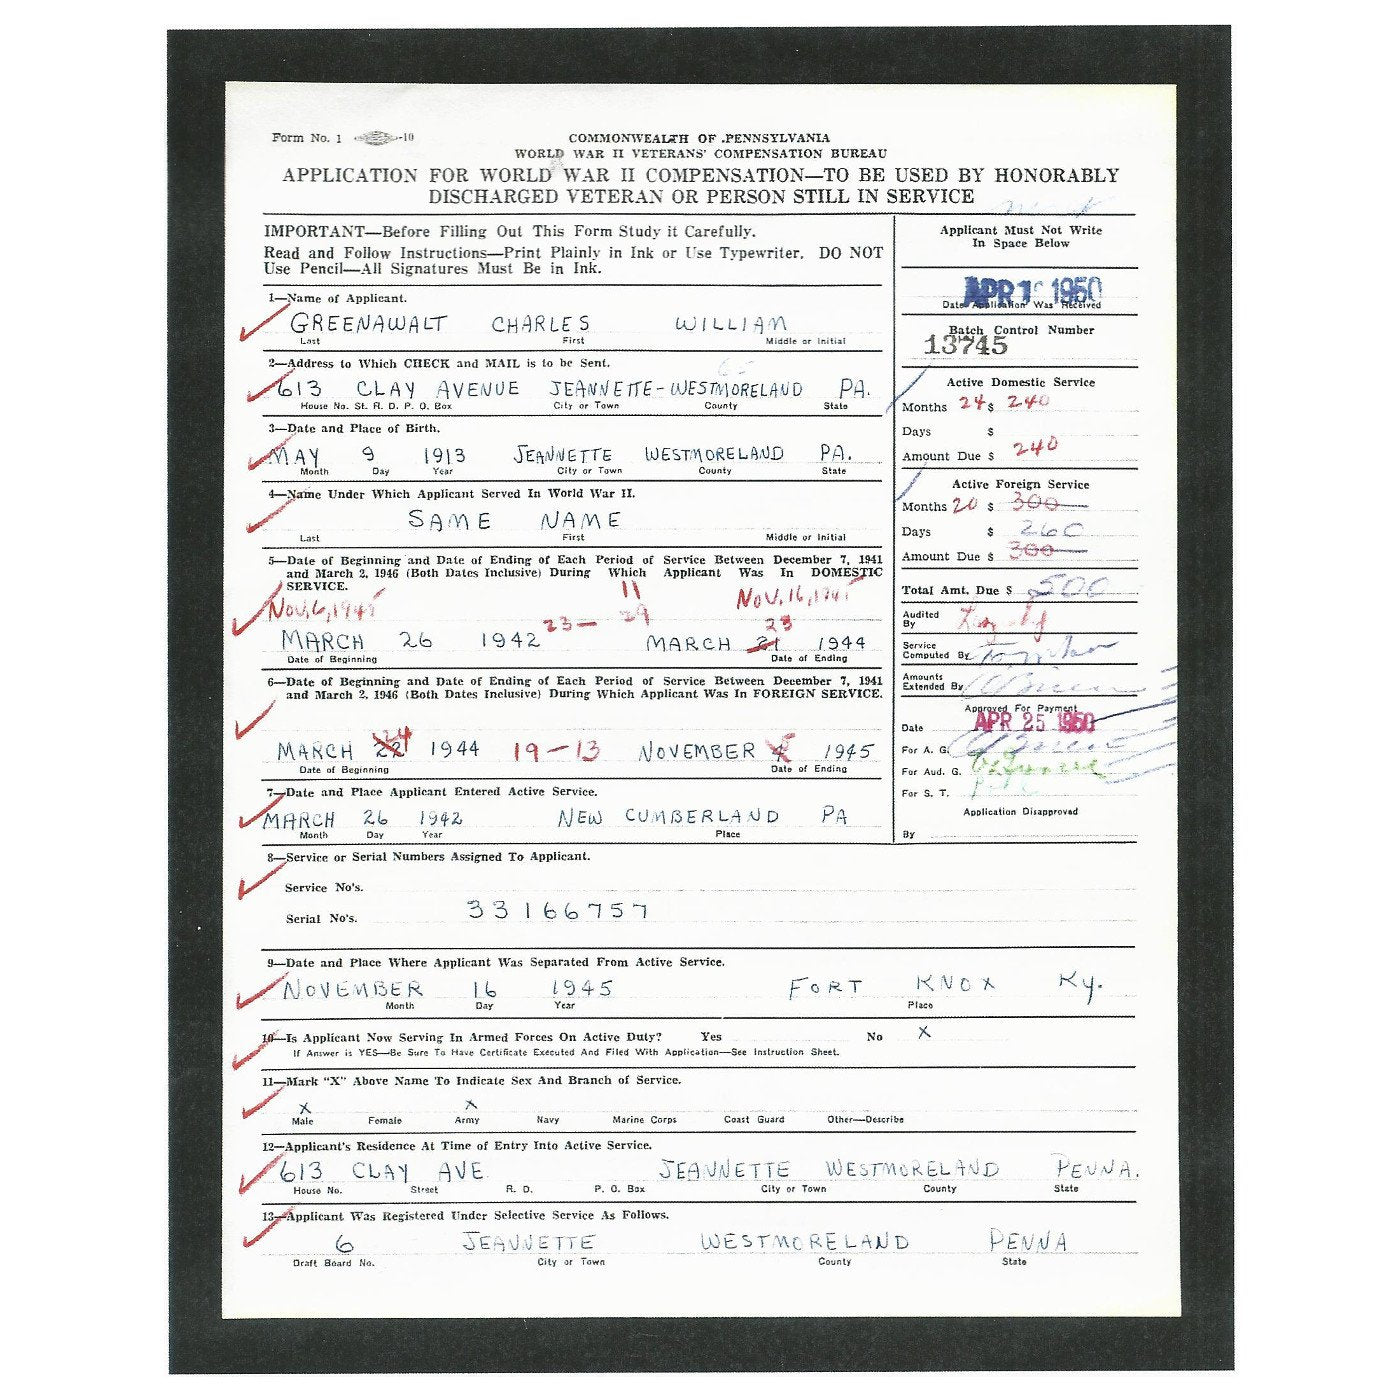 Form No. 1 -10
COMMONWEALTH OF PENNSYLVANIA
WORLD WAR II VETERANS' COMPENSATION BUREAU
APPLICATION FOR WORLD WAR II COMPENSATION—TO BE USED BY HONORABLY
DISCHARGED VETERAN OR PERSON STILL IN SERVICE
IMPORTANT—Before Filling Out This Form Study it Carefully.
Read and Follow Instructions—Print Plainly in Ink or Use Typewriter. DO NOT
Use Pencil—All Signatures Must Be in Ink.
1—Name of Applicant.
GREENAWALT CHARLES WILLIAM
Last First Middle or Initial
2—Address to Which CHECK and MAIL is to be Sent.
613 CLAY AVENUE JEANNETTE-WESTMORELAND PA.
House No. St. R. D. P. O. Box City or Town County State
3—Date and Place of Birth.
MAY 9 1913 JEANNETTE WESTMORELAND PA.
Month Day Year City or Town County State
4—Name Under Which Applicant Served In World War II.
SAME NAME
Last First Middle or Initial
5—Date of Beginning and Date of Ending of Each Period of Service Between December 7, 1941
and March 2, 1946 (Both Dates Inclusive) During Which Applicant Was In DOMESTIC
SERVICE.
11
Nov. 6, 1945 29 Nov. 16, 1945
23— 23
MARCH 26 1942 MARCH 21 1944
Date of Beginning Date of Ending
6—Date of Beginning and Date of Ending of Each Period of Service Between December 7, 1941
and March 2, 1946 (Both Dates Inclusive) During Which Applicant Was In FOREIGN SERVICE.
24 5
MARCH 22 1944 19-13 NOVEMBER 4 1945
Date of Beginning Date of Ending
7—Date and Place Applicant Entered Active Service.
MARCH 26 1942 NEW CUMBERLAND PA
Month Day Year Place
Applicant Must Not Write
In Space Below
APR 1 1950
Date Application Was Received
Batch Control Number
13745
Active Domestic Service
Months 24 $ 240
Days $
Amount Due $ 240
Active Foreign Service
Months 20 $ 300
Days $ 260
Amount Due $ 300
Total Amt. Due $ 500
Audited
By
Service
Computed By
Amounts
Extended By
Approved For Payment
Date APR 25 1950
For A. G.
For Aud. G.
For S. T.
Application Disapproved
By
8—Service or Serial Numbers Assigned To Applicant.
Service No's.
Serial No's. 33166757
9—Date and Place Where Applicant Was Separated From Active Service.
NOVEMBER 16 1945 FORT KNOX Ky.
Month Day Year Place
10—Is Applicant Now Serving In Armed Forces On Active Duty? Yes No X
If Answer is YES—Be Sure To Have Certificate Executed And Filed With Application—See Instruction Sheet.
11—Mark "X" Above Name To Indicate Sex And Branch of Service.
X X
Male Female Army Navy Marine Corps Coast Guard Other—Describe
12—Applicant's Residence At Time of Entry Into Active Service.
613 CLAY AVE JEANNETTE WESTMORELAND PENNA.
House No. Street R. D. P. O. Box City or Town County State
13—Applicant Was Registered Under Selective Service As Follows.
6 JEANNETTE WESTMORELAND PENNA
Draft Board No. City or Town County State